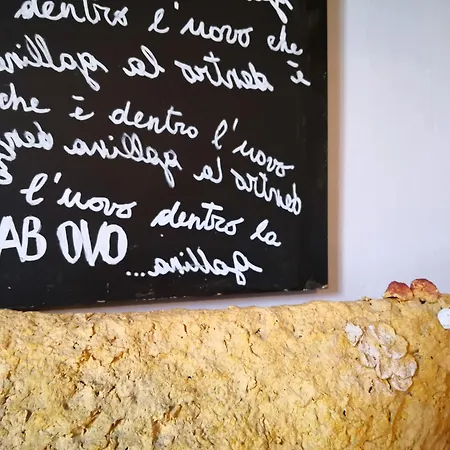 dentro l'uovo che
è dentro la gallina
che è dentro l'uovo
dentro la gallina
l'uovo dentro la
gallina...
AB OVO